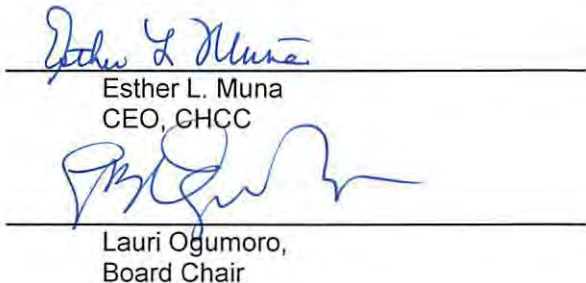 Esther L Muna
Esther L. Muna
CEO, CHCC
Lauri Ogumoro,
Board Chair